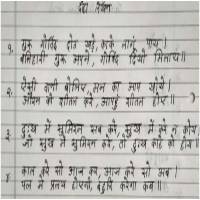 दोहा लेखन
१. गुरु गोविंद दोउ खड़े, काके लागूं पाय।
बलिहारी गुरु आपने, गोविंद दियो मिलाय॥
२. ऐसी वाणी बोलिए, मन का आपा खोये।
औरन को शीतल करे, आपहुं शीतल होए॥
३. दुःख में सुमिरन सब करे, सुख में करे न कोय।
जो सुख में सुमिरन करे, तो दुःख काहे को होय॥
४. काल करे सो आज कर, आज करे सो अब।
पल में प्रलय होएगी, बहुरि करेगा कब॥